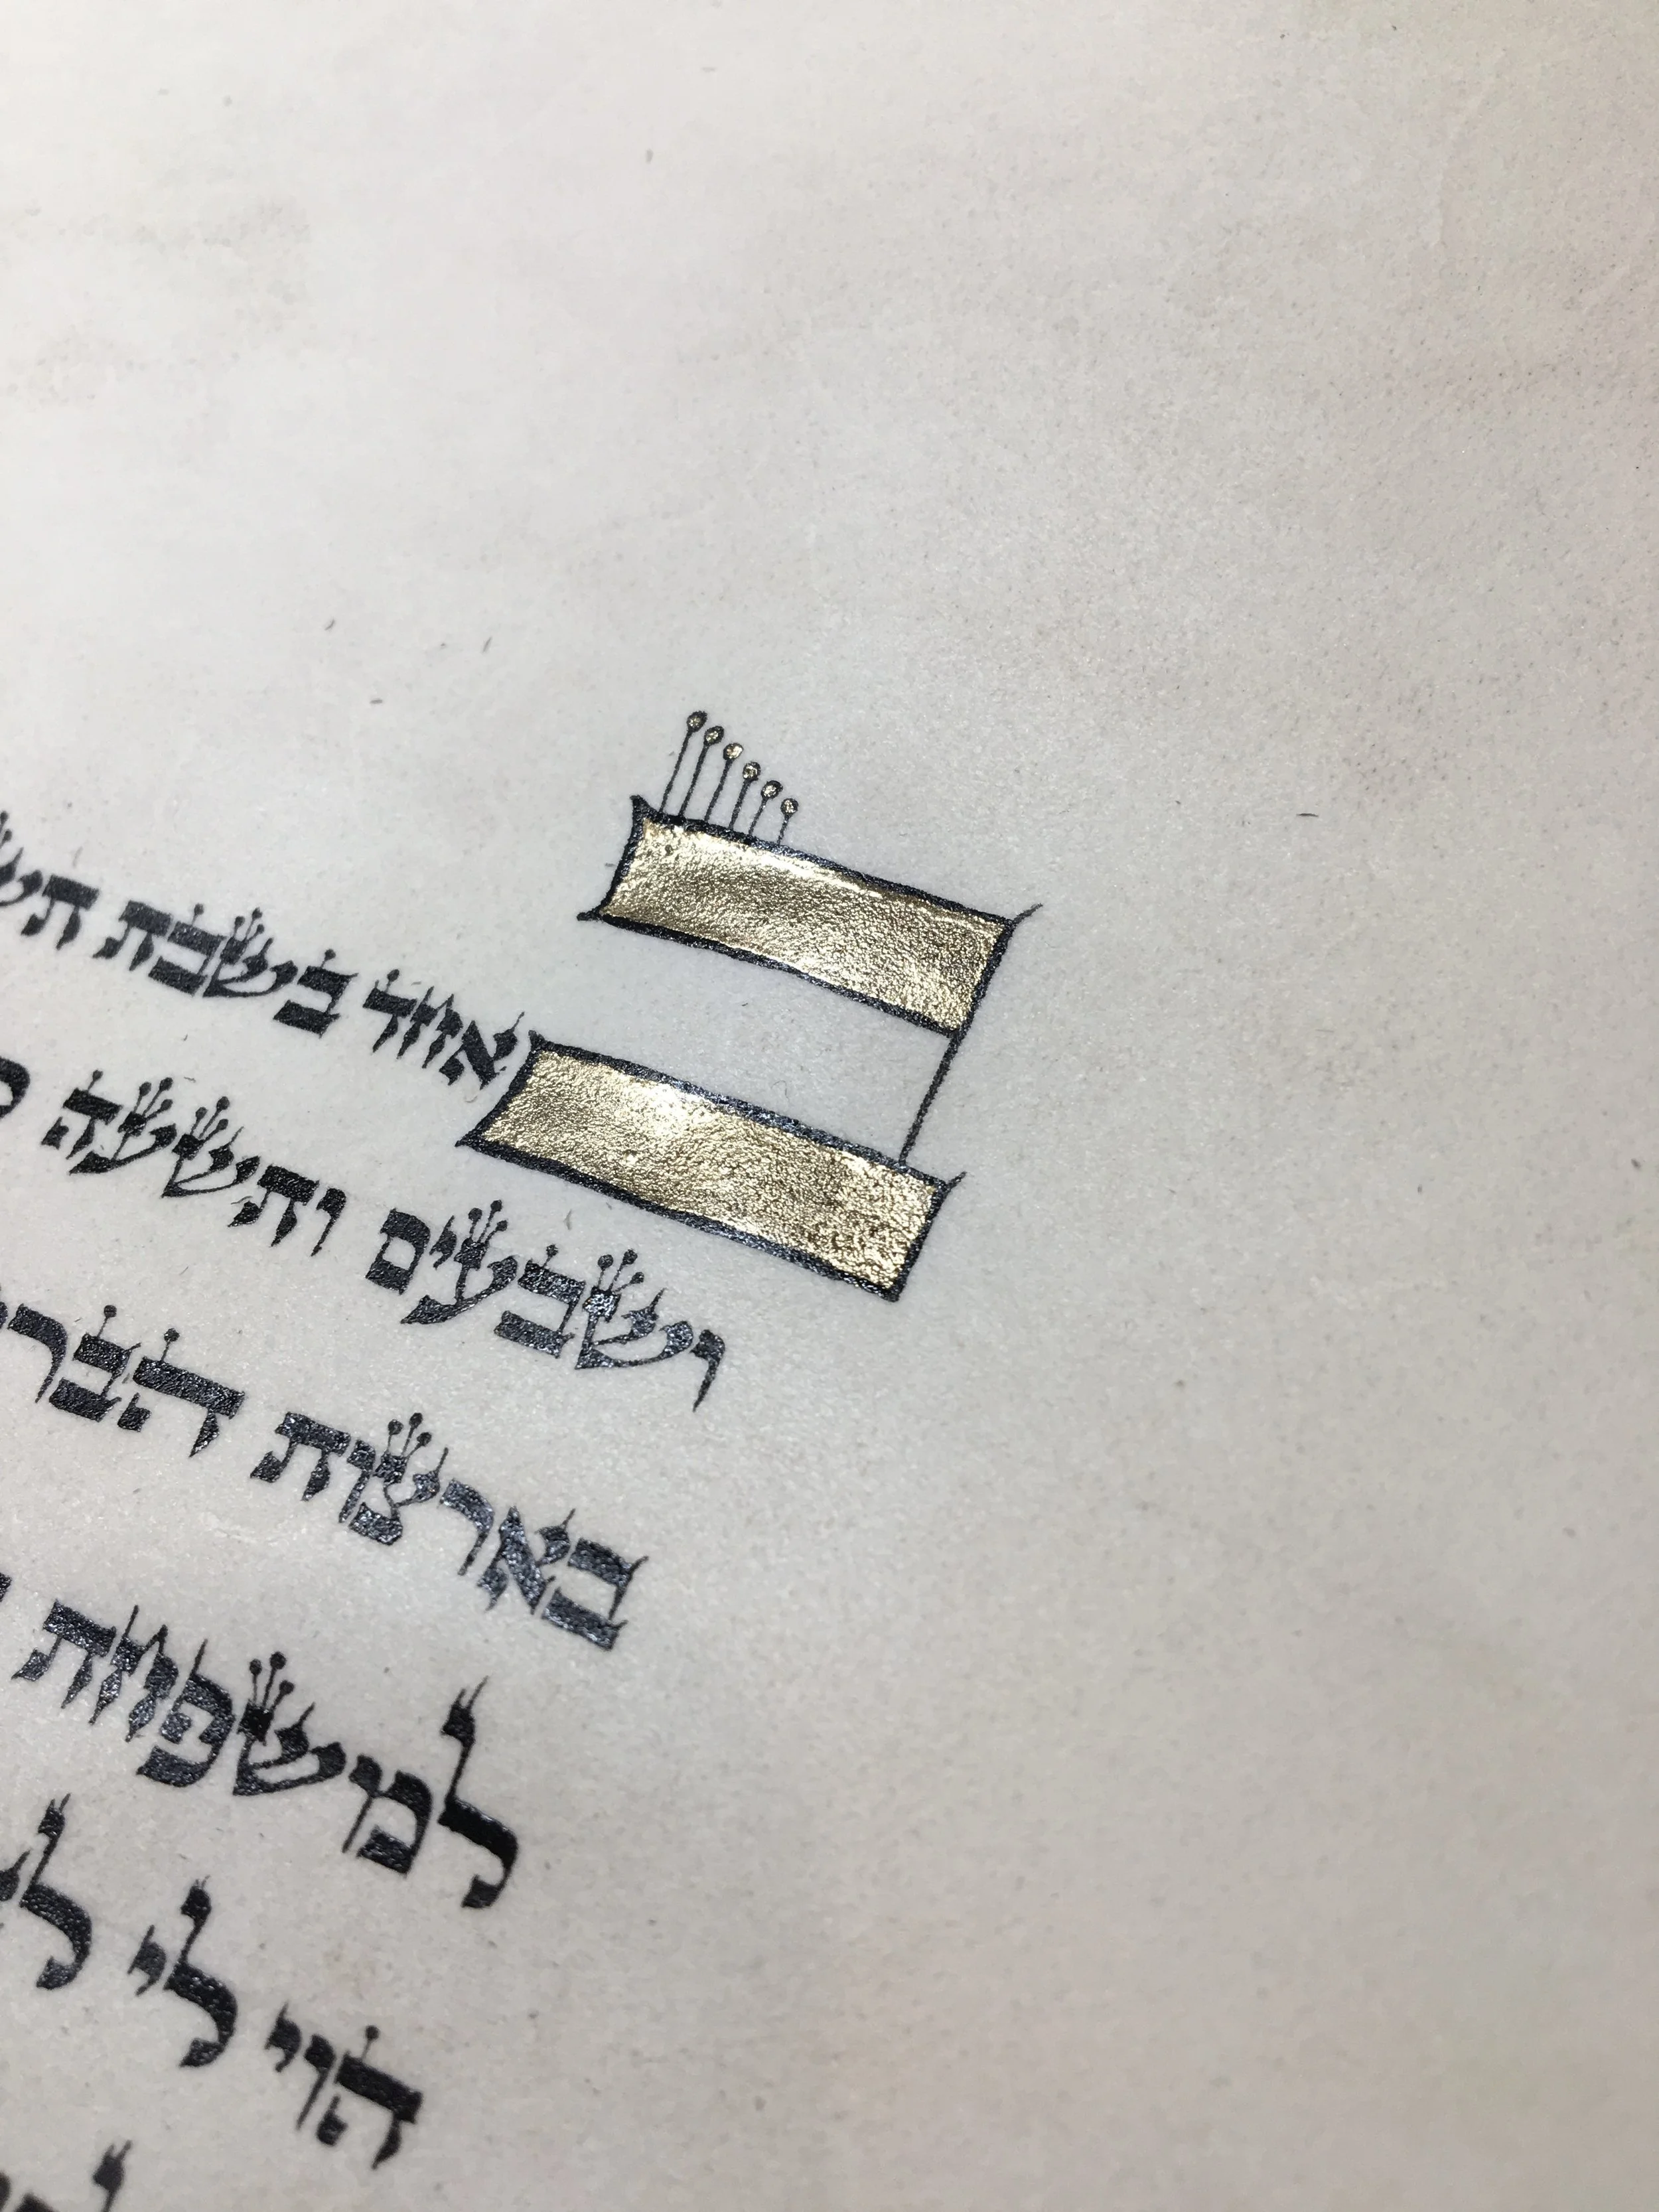 באחד בשבת
ושבעים ותשעה
בארצות
למשפחת
הוי לי